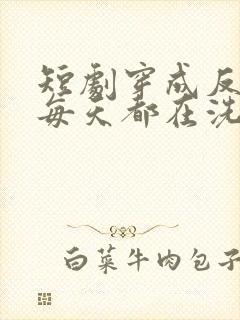 短劇穿成反
每天都在洗
白菜牛肉包子